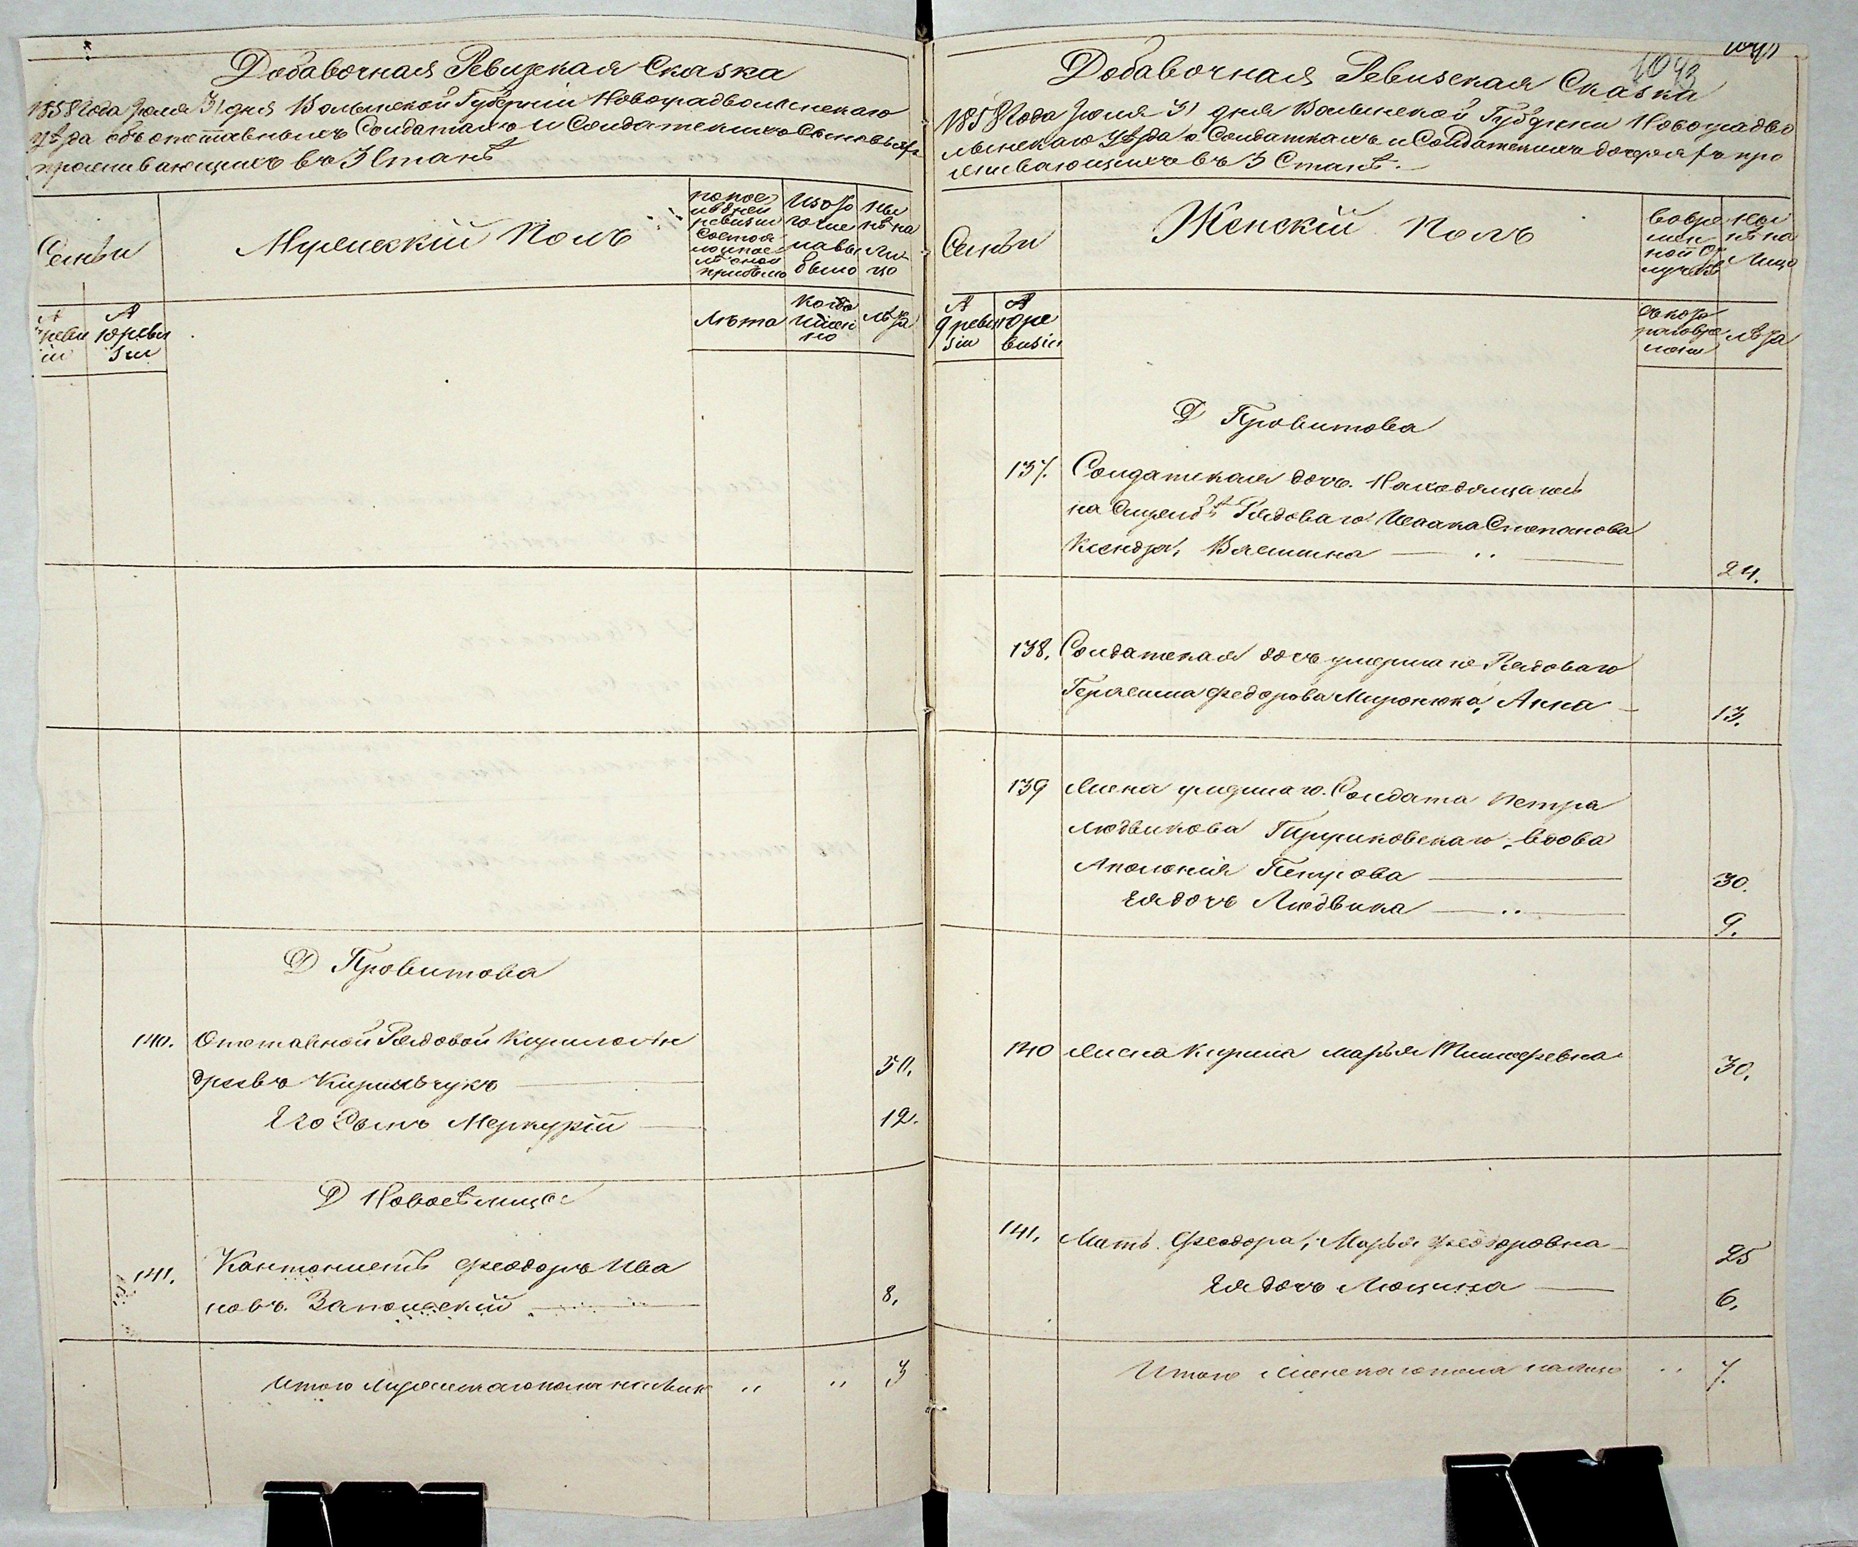 Добавочная Ревизская Сказка
1858 Года Июля 31 дня Волынской Губерніи Новоградволынскаго
Уѣзда объ отставныхъ Солдатахъ и Солдатскихъ Сыновьяхъ
проживающихъ въ 3 Станѣ
Семьи
Мужескій Полъ
по послѣдней ревизіи состояло и послѣ оной прибыло
Изъ того числа выбыло
Нынѣ на лицо
ревизіи
10 ревизіи
Лѣта
Когда именно
Лѣта
Д Провитова
140. Отставной Рядовой Кирило Ан
дреевъ Кирильчукъ 50.
Его Сынъ Меркурій 12.
Д Новосѣлица
141. Кантонистъ Феодоръ Ива
новъ Запольскій 8.
Итого Мужескаго пола на лицо " " 3
1093
Добавочная Ревизская Сказка
1858 Года Июля 31 дня Волынской Губерніи Новоградво
лынскаго Уѣзда о Солдаткахъ и Солдатскихъ дочеряхъ про
живающихъ въ 3 Станѣ.
Семьи
Женскій Полъ
Во временной отлучкѣ
Нынѣ на Лицо
9 ревизіи
10 ревизіи
съ котораго времени
Лѣта
Д Провитова
137. Солдатская дочь. Находящагося
на Службѣ Рядоваго Исаака Степанова
24.
138. Солдатская дочь умершаго Рядоваго
Герасима Федорова Миронюка, Анна 13.
139 Жена умершаго Солдата Петра
Людвикова вдова
Аполонія Петрова 30.
Ея дочь Людвика 9.
140 Жена Кирила Марья Тимофеевна 30.
141. Мать Феодора, Марья Феодоровна 25
Ея дочь Люцина 6.
Итого Женскаго пола на лицо " 7.